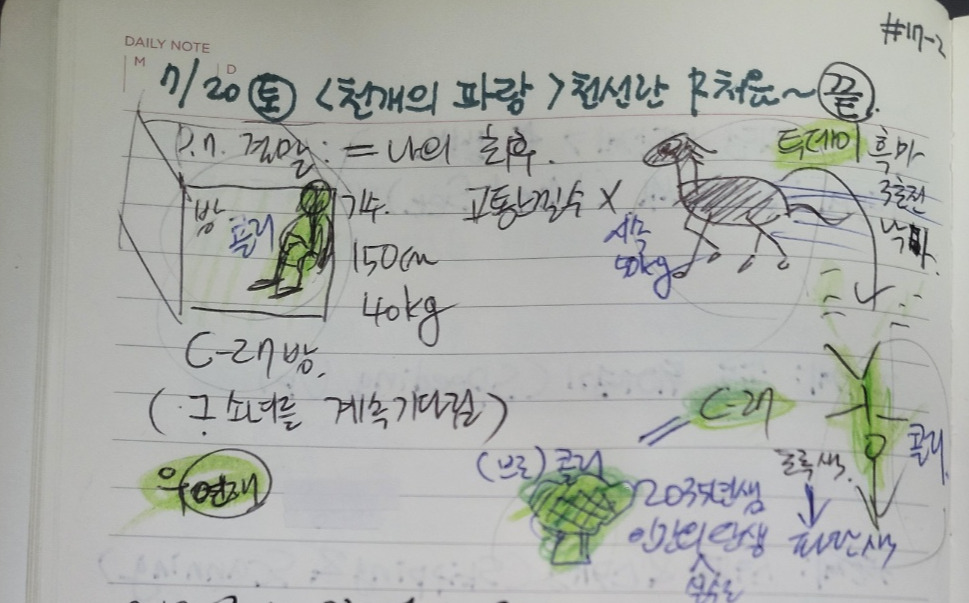 #17-2
DAILY NOTE
M D
7/20 토 <천개의 파랑> 천선란 처음~끝.
결말 : = 나의 최후.
투데이
흑마
3초전
낙마.
방
콜리
기수.
150cm
40kg
고통난일수 X
시속
50kg
C-27방.
(그 소녀를 계속 기다림)
C-27
우연재
(브로)콜리
2035년생
인간의 인생
초록색
파란색
콜리